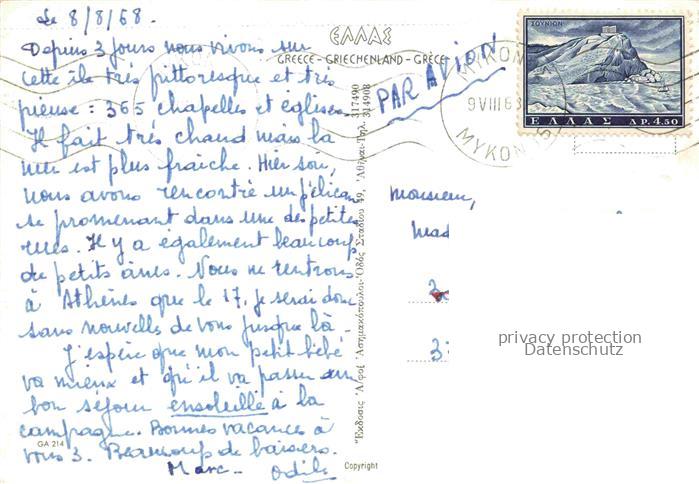 Le 8/8/68.
Depuis 3 jours nous vivons sur
cette île très pittoresque et très
pieuse : 365 chapelles et églises.
Il fait très chaud mais la
mer est plus fraîche. Hier soir,
nous avons rencontré un pélican
se promenant dans une des petites
rues. Il y a également beaucoup
de petits ânes. Nous ne rentrons
à Athènes que le 17, je serai donc
sans nouvelles de vous jusque là.
J'espère que mon petit bébé
va mieux et qu'il va passer un
bon séjour ensoleillé à la
campagne. Bonnes vacances à
vous 3. Beaucoup de baisers.
Marc - Odile
GA 214
ΕΛΛΑΣ
GREECE - GRIECHENLAND - GRÈCE
PAR AVION
Ἔκδοσις Ἀφοί Ἀσημακόπουλοι Ὁδός Σταδίου 49, Ἀθῆναι-Τηλ. 317490 314908
Copyright
ΣΟΥΝΙΟΝ
ΕΛΛΑΣ ΔΡ. 4.50
MYKONOS
9 VIII 68
ΜΥΚΟΝΟΣ
Monsieur,
Mad
3
privacy protection
Datenschutz